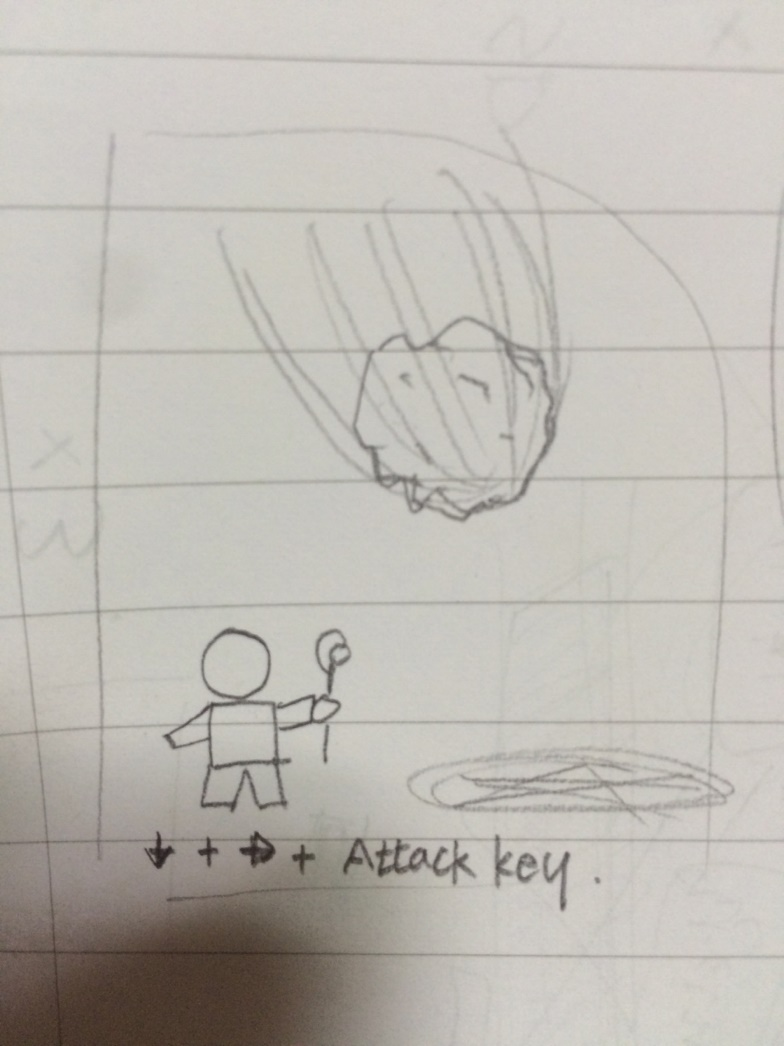 ↓ + → + Attack key.